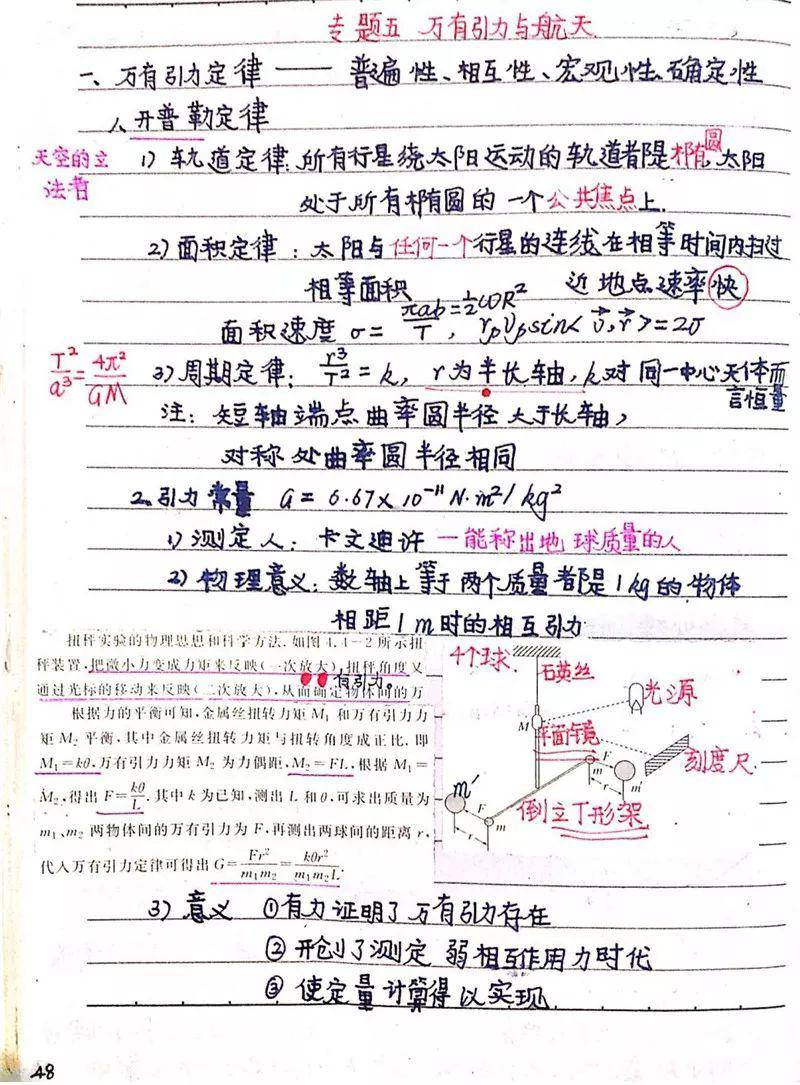 专题五 万有引力与航天
一、万有引力定律 —— 普遍性、相互性、宏观性、确定性
1、开普勒定律
天空的立法者
1) 轨道定律:所有行星绕太阳运动的轨道都是椭圆,太阳
处于所有椭圆的一个公共焦点上.
2) 面积定律:太阳与任何一个行星的连线在相等时间内扫过
相等面积 近地点速率快
面积速度 σ = πab/T = ½ωR², r_p v_p sin<v⃗,r⃗> = 2σ
T²/a³ = 4π²/GM
3) 周期定律: r³/T² = k, r为半长轴,k对同一中心天体而
言恒量
注:短轴端点曲率圆半径大于长轴,
对称处曲率圆半径相同
2.引力常量 G = 6.67×10⁻¹¹ N·m²/kg²
1) 测定人:卡文迪许 — 能称出地球质量的人
2) 物理意义:数轴上等于两个质量都是1kg的物体
相距1m时的相互引力
扭秤实验的物理思想和科学方法.如图4.4-2所示扭
秤装置,把微小力变成力矩来反映(一次放大),扭秤角度又
通过光标的移动来反映(二次放大),从而确定物体间的万
有引力.
根据力的平衡可知,金属丝扭转力矩M₁和万有引力力
矩M₂平衡,其中金属丝扭转力矩与扭转角度成正比,即
M₁=kθ,万有引力力矩M₂为力偶距,M₂=FL,根据M₁=
M₂,得出F=kθ/L.其中k为已知,测出L和θ,可求出质量为
m₁、m₂两物体间的万有引力为F,再测出两球间的距离r,
代入万有引力定律可得出G=Fr²/m₁m₂=kθr²/m₁m₂L.
4个球
石英丝
光源
M
平面镜
刻度尺
F
m
r
m'
m'
F
m
r
倒立丁形架
3) 意义 ①有力证明了万有引力存在
②开创了测定弱相互作用力时代
③使定量计算得以实现
48